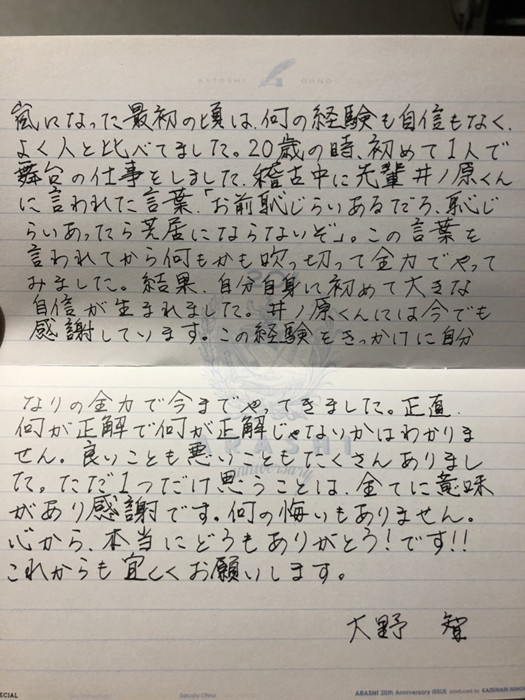 SATOSHI OHNO
嵐になった最初の頃は、何の経験も自信もなく、
よく人と比べてました。20歳の時、初めて1人で
舞台の仕事をしました。稽古中に先輩井ノ原くん
に言われた言葉、「お前恥じらいあるだろ、恥じ
らいあったら芝居にならないぞ」。この言葉を
言われてから何もかも吹っ切って全力でやって
みました。結果、自分自身に初めて大きな
自信が生まれました。井ノ原くんには今でも
感謝しています。この経験をきっかけに自分
なりの全力で今までやってきました。正直、
何が正解で何が正解じゃないかはわかりま
せん。良いことも悪いこともたくさんありまし
た。ただ1つだけ思うことは、全てに意味
があり感謝です。何の悔いもありません。
心から、本当にどうもありがとう!です!!
これからも宜しくお願いします。
大野 智
ARASHI
anniversary
SPECIAL
Satoshi Ohno
ARASHI 20th Anniversary ISSUE produced by KAZUNARI